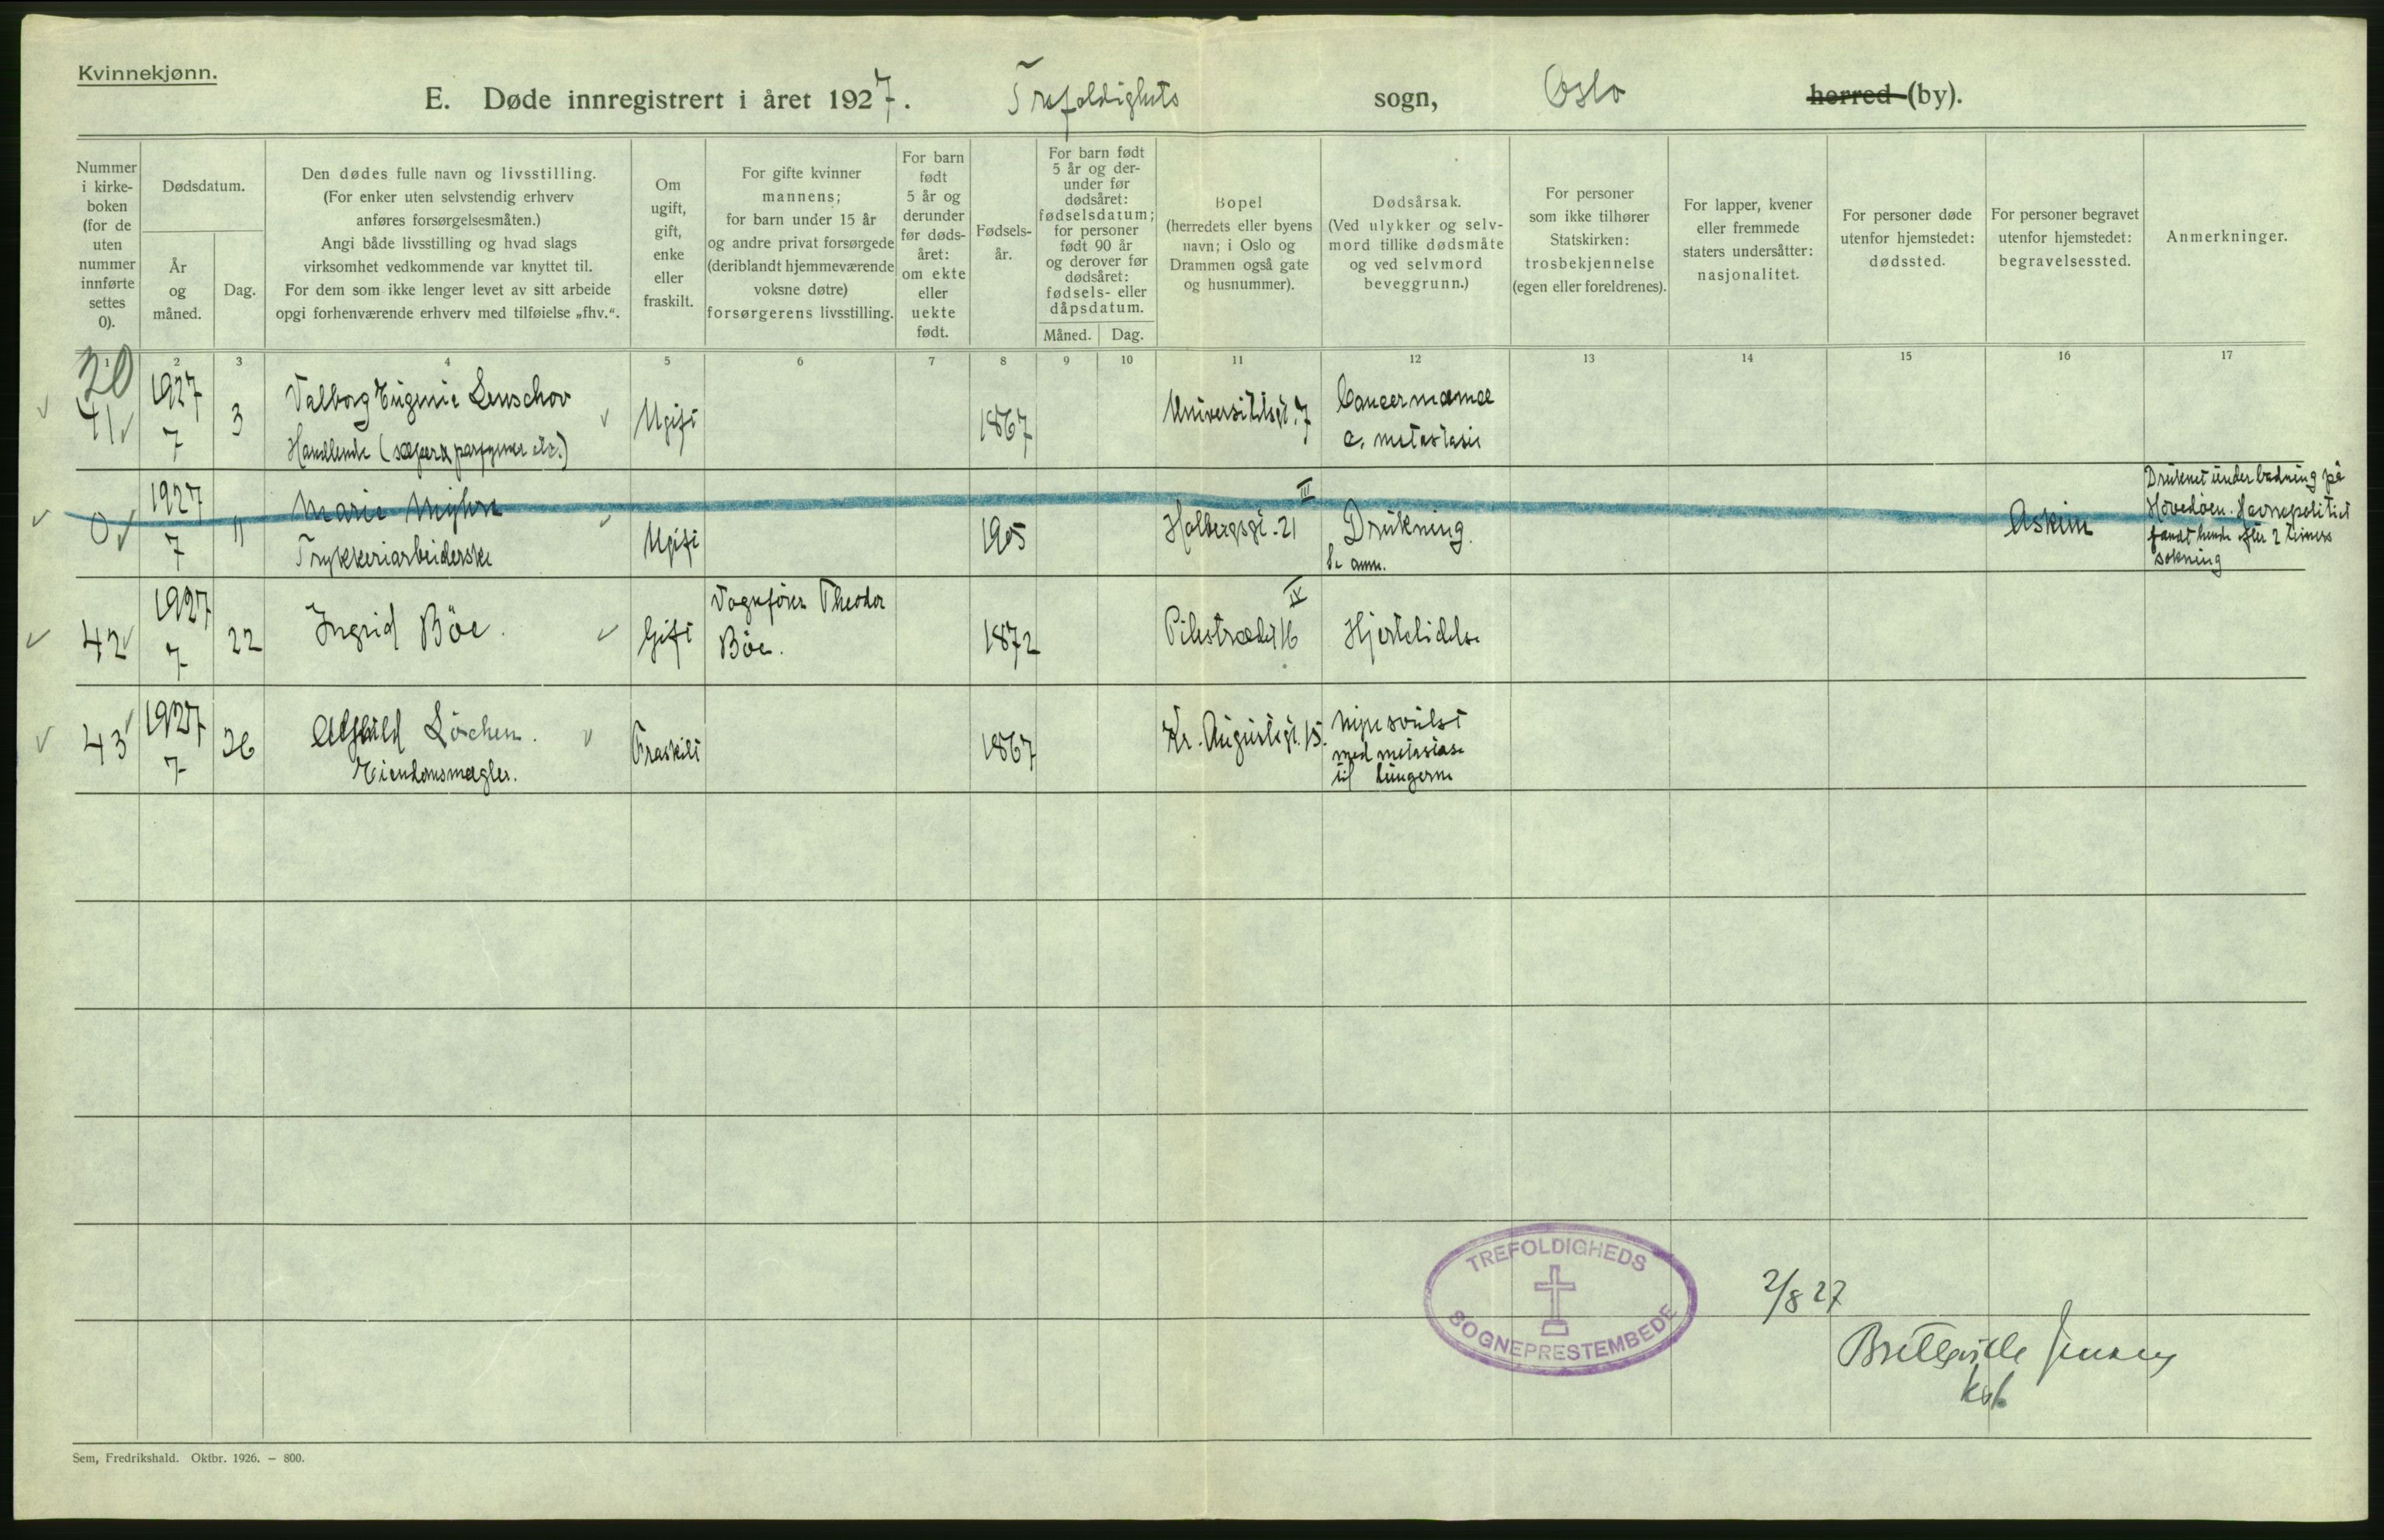 Kvinnekjønn.
E. Døde innregistrert i året 1927. Trefoldighets sogn, Oslo herred (by).
Nummer
i kirke-
boken
(for de
uten
nummer
innførte
settes
0).
Dødsdatum.
År
og
måned.
Dag.
Den dødes fulle navn og livsstilling.
(For enker uten selvstendig erhverv
anføres forsørgelsesmåten.)
Angi både livsstilling og hvad slags
virksomhet vedkommende var knyttet til.
For dem som ikke lenger levet av sitt arbeide
opgi forhenværende erhverv med tilføielse „fhv.“.
Om
ugift,
gift,
enke
eller
fraskilt.
For gifte kvinner
mannens;
for barn under 15 år
og andre privat forsørgede
(deriblandt hjemmeværende
voksne døtre)
forsørgerens livsstilling.
For barn
født
5 år og
derunder
før døds-
året:
om ekte
eller
uekte
født.
Fødsels-
år.
For barn født
5 år og der-
under før
dødsåret:
fødselsdatum;
for personer
født 90 år
og derover før
dødsåret:
fødsels- eller
dåpsdatum.
Måned. Dag.
Bopel
(herredets eller byens
navn; i Oslo og
Drammen også gate
og husnummer).
Dødsårsak.
(Ved ulykker og selv-
mord tillike dødsmåte
og ved selvmord
beveggrunn.)
For personer
som ikke tilhører
Statskirken:
trosbekjennelse
(egen eller foreldrenes).
For lapper, kvener
eller fremmede
staters undersåtter:
nasjonalitet.
For personer døde
utenfor hjemstedet:
dødssted.
For personer begravet
utenfor hjemstedet:
begravelsessted.
Anmerkninger.
1 2 3 4 5 6 7 8 9 10 11 12 13 14 15 16 17
20
41 1927 7 3
Valborg Eugenie Lenschov
Handlende (sæper & parfymer etc.)
Ugift 1867 Universitetsgt. 7
Cancer mamæ
c. metastasis
0 1927 7 11
Marie Myhre
Trykkeriarbeiderske
Ugift 1905 Holbergsgt. 21 III
Drukning.
Se anm.
Askim
Druknet under badning på
Hovedøen. Havnepolitiet
fandt hende efter 2 timers
søkning
42 1927 7 22
Ingrid Böe.
Gift
Vognfører Theodor
Böe.
1872 Pilestrædet 16 IV Hjertelidelse
43 1927 7 26
Løchen.
Eiendomsmægler.
Fraskilt 1867 Kr. Augustsgt. 15.
Nyresvulst
med metastase
til lungerne
TREFOLDIGHEDS
SOGNEPRESTEMBEDE
2/8 27
Bretteville Jensen
Sem, Fredrikshald. Oktbr. 1926. — 800.